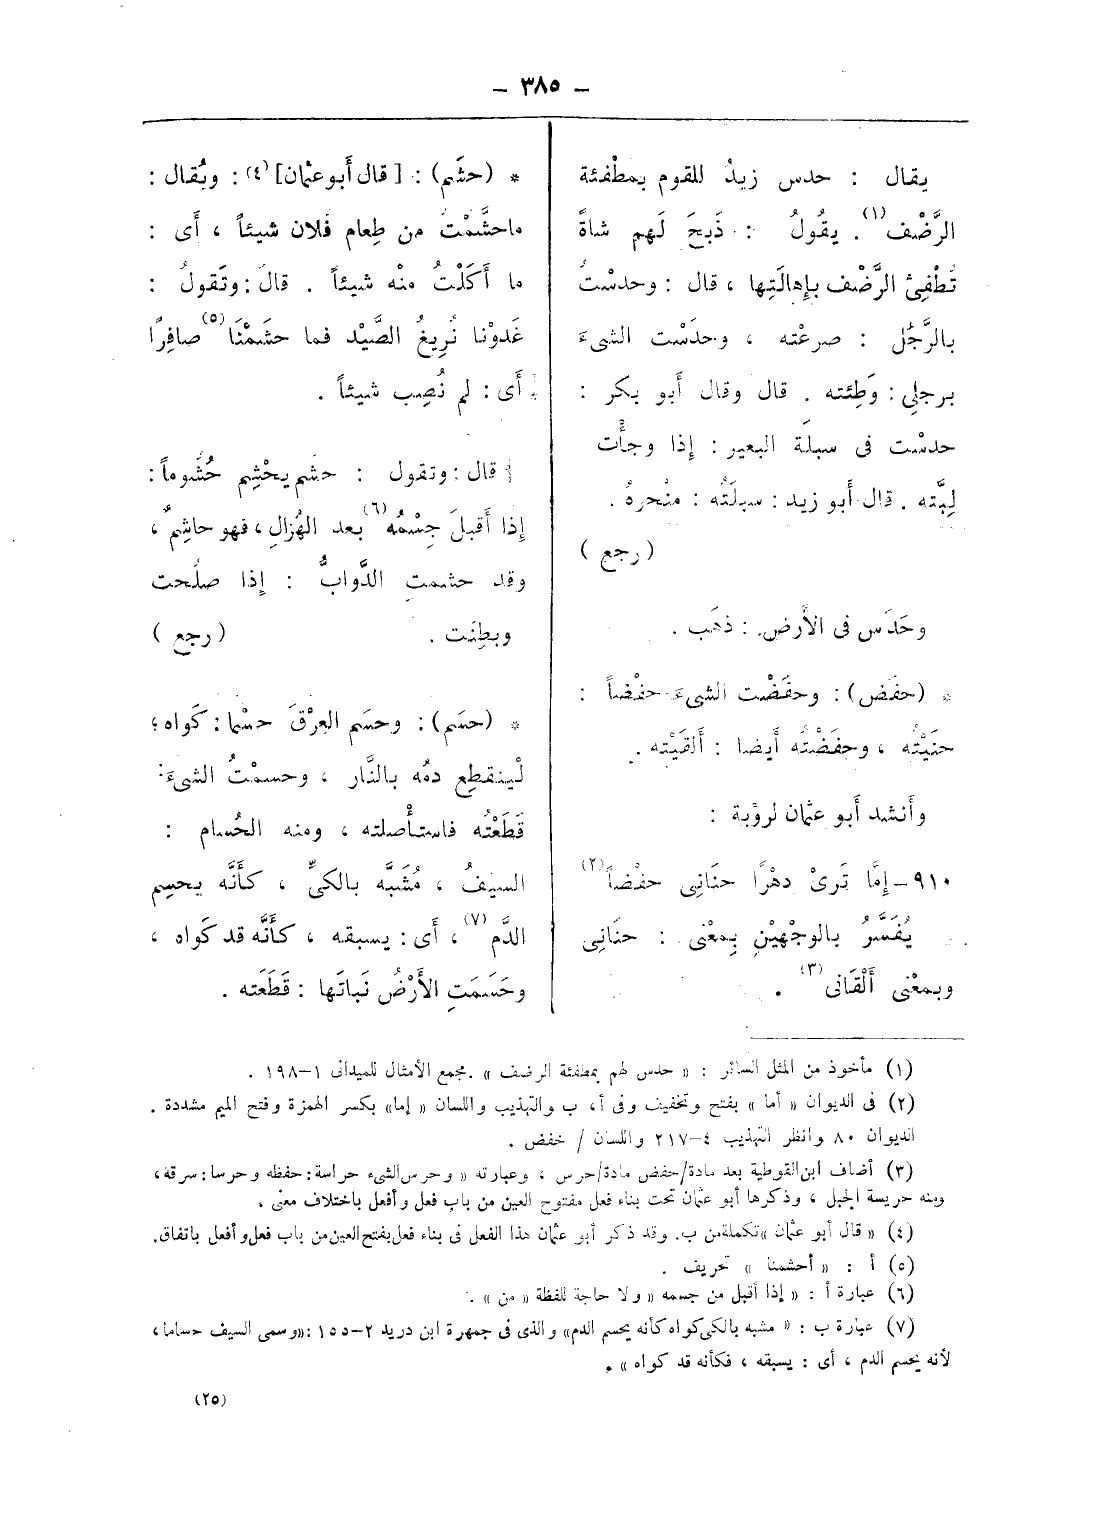 — ٣٨٥ —
يقال : حدس زيدٌ للقوم بمطْفئة
الرَّضْف(١). يقُولُ : ذَبحَ لَهم شاةً
تُطْفِئ الرَّضْف بإهالَتِها ، قال : وحدسْتُ
بالرَّجُل : صرعْته ، وحدَسْت الشىءَ
برجلى : وَطِئته . قال وقال أَبو بكر :
حدسْت فى سبلَة البعير : إذا وجأْت
لبَّته . قال أَبو زيد : سبلَتُه : منْحرهُ .
( رجع )
وحَدَس فى الأَرض : ذهَب .
* (حفَض) : وحفَضْت الشىءَ حفْضاً :
حنَيْتُه ، وحفَضْتُه أَيضا : أَلقَيْته .
وأَنشد أَبو عثمان لرؤبة :
٩١٠ – إمَّا تَرىْ دهْرًا حنَانِى حفْضاً(٢)
يُفَسَّرُ بالوجْهيْنِ بِمعْنى : حنَانِى
وبمعْنى أَلْقَانى(٣) .
* (حشَم) : [ قال أَبو عثمان] (٤) : ويُقال :
ماحشَّمْتُ من طِعام فُلان شيئاً ، أَى :
ما أَكَلْتُ منْه شيئاً . قالَ : وتَقولُ :
غَدوْنا نُريغُ الصَّيْد فما حشَمْنَا(٥) صافِرًا
أَى : لم نُصِب شيئاً .
قال : وتقول : حشَم يحْشِم حُشُوماً :
إذا أَقبلَ جِسْمُه(٦) بعد الهُزالِ ، فهو حاشِمٌ ،
وقد حشمتِ الدَّوابُّ : إذا صلُحت
وبطِنَت . ( رجع )
* (حسَم) : وحسَم العِرْقَ حسْما : كَواه ؛
لْينقطِع دمُه بالنَّار ، وحسمْتُ الشىءَ :
قَطَعْتُه فاستأْصلته ، ومنه الحُسام :
السيفُ ، مُشَبَّه بالكىِّ ، كأَنَّه يحسِم
الدَّم(٧) ، أَى : يسبقه ، كأَنَّه قد كَواه ،
وحَسَمَتِ الأَرْضُ نَباتَها : قَطَعَته .
(١) مأخوذ من المثل السائر : « حدس لهم بمطفئة الرضف » . مجمع الأمثال للميدانى ١–١٩٨ .
(٢) فى الديوان « أما » بفتح وتخفيف وفى أ، ب والتهذيب واللسان « إما» بكسر الهمزة وفتح الميم مشددة .
الديوان ٨٠ وانظر التهذيب ٤–٢١٧ واللسان / حفض .
(٣) أضاف ابن القوطية بعد مادة/حفض مادة/حرس ، وعبارته « وحرس الشىء حراسة : حفظه وحرسا : سرقة ،
ومنه حريسة الجبل ، وذكرها أبو عثمان تحت بناء فعل مفتوح العين من باب فعل وأفعل باختلاف معنى .
(٤) « قال أبو عثمان » تكملة من ب. وقد ذكر أبو عثمان هذا الفعل فى بناء فعل بفتح العين من باب فعل وأفعل باتفاق.
(٥) أ : « أحشمنا » تحريف .
(٦) عبارة أ : « إذا أقبل من جسمه « ولا حاجة للفظة « من » .
(٧) عبارة ب : « مشبه بالكى كواه كأنه يحسم الدم» والذى فى جمهرة ابن دريد ٢–١٥٥ :«وسمى السيف حساما ،
لأنه يحسم الدم ، أى : يسبقه ، فكأنه قد كواه » .
(٢٥)